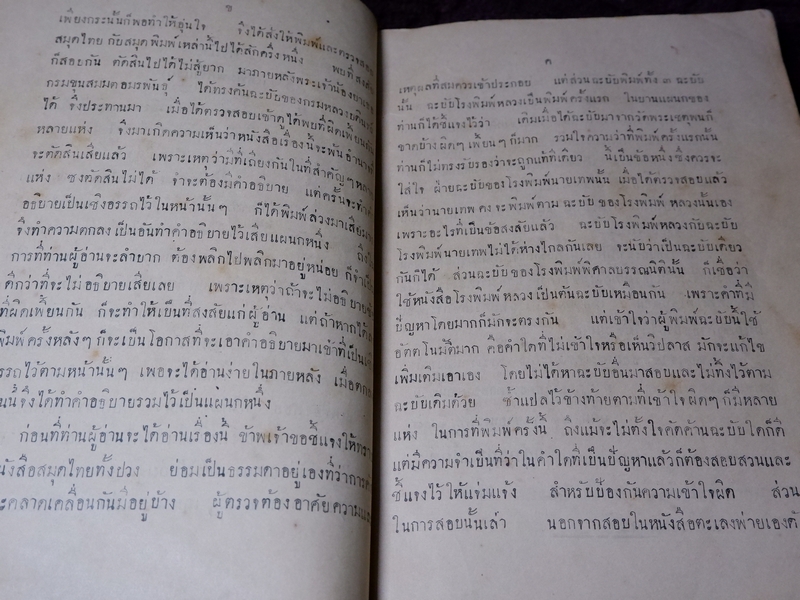 ข
เพียงกระนั้นก็พอทำให้อุ่นใจ จึงได้สั่งให้พิมพ์และตรวจสอบ
สมุดไทย กับสมุดพิมพ์เหล่านี้ไปได้สักครึ่งหนึ่ง พบที่สงสัย
ก็สอบกัน ตัดสินไปได้ไม่สู้ยาก มาภายหลังพระเจ้าน้องยาเธอ
กรมขุนสมมตอมรพันธุ์ ได้ทรงค้นฉะบับของกรมหลวง
ได้ จึงประทานมา เมื่อได้ตรวจสอบเข้าดูได้พบที่ผิดเพี้ยนกัน
หลายแห่ง จึงมาเกิดความเห็นว่าหนังสือเรื่องนี้จะพ้นอำนาจ
จะตัดสินเสียแล้ว เพราะเหตุว่ามีที่เถียงกันในที่สำคัญๆ
แห่ง ซึ่งตัดสินไม่ได้ จำจะต้องมีคำอธิบาย แต่ครั้นจะทำคำ
อธิบายเป็นเชิงอรรถไว้ในหน้านั้นๆ ก็ได้พิมพ์ล่วงมาเสีย
จึงทำความตกลงเป็นอันทำคำอธิบายไว้เสียแผนกหนึ่ง ถึง
การที่ท่านผู้อ่านจะลำบาก ต้องพลิกไปพลิกมาอยู่หน่อย ก็
ดีกว่าที่จะไม่อธิบายเสียเลย เพราะเหตุว่าถ้าจะไม่อธิบาย
ที่ผิดเพี้ยนกัน ก็จะทำให้เป็นที่สงสัยแก่ผู้อ่าน แต่ถ้าหากได้
พิมพ์ครั้งหลังๆ ก็จะเป็นโอกาสที่จะเอาคำอธิบายมาเข้าที่เป็น
รรถไว้ตามหน้านั้นๆ เพอจะได้อ่านง่ายในภายหลัง เมื่อตกลง
นี้จึงได้ทำคำอธิบายรวมไว้เป็นแผนกหนึ่ง
ก่อนที่ท่านผู้อ่านจะได้อ่านเรื่องนี้ ข้าพเจ้าขอชี้แจงให้ทราบ
นังสือสมุดไทยทั้งปวง ย่อมเป็นธรรมดาอยู่เองที่ว่าการ
ะคลาดเคลื่อนกันมีอยู่บ้าง ผู้ตรวจต้องอาศัยความ
ค
เหตุผลที่สมควรเข้าประกอบ แต่ส่วนฉะบับพิมพ์ทั้ง ๓ ฉะบับ
นั้น ฉะบับโรงพิมพ์หลวงเป็นพิมพ์ครั้งแรก ในบานแผนกของ
ท่านก็ได้ชี้แจงไว้ว่า เดิมเมื่อได้ฉะบับมาจากวัดพระเชตุพนก็
ขาดบ้างผิดๆเพี้ยนๆก็มาก รวมใจความว่าที่พิมพ์ครั้งแรกนั้น
ท่านก็ไม่ทรงรับรองว่าจะถูกแท้ทีเดียว นี่เป็นข้อหนึ่งซึ่งควรจะ
ใส่ใจ ฝ่ายฉะบับของโรงพิมพ์นายเทพนั้น เมื่อได้ตรวจสอบแล้ว
เห็นว่านายเทพ คงจะพิมพ์ตามฉะบับของโรงพิมพ์หลวงนั้นเอง
เพราะอะไรที่เป็นข้อสงสัยแล้ว ฉะบับโรงพิมพ์หลวงกับฉะบับ
โรงพิมพ์นายเทพไม่ได้ห่างไกลกันเลย จะนับว่าเป็นฉะบับเดียว
กันก็ได้ ส่วนฉะบับของโรงพิมพ์พิศาลบรรณนิติ์นั้น ก็เชื่อว่า
ใช้หนังสือโรงพิมพ์หลวงเป็นต้นฉะบับเหมือนกัน เพราะคำที่มี
ปัญหาโดยมากก็มักจะตรงกัน แต่เข้าใจว่าผู้พิมพ์ฉะบับนี้ใช้
อัตตโนมัติมาก คือคำใดที่ไม่เข้าใจหรือเห็นวิปลาส มักจะแก้ไข
เพิ่มเติมเอาเอง โดยไม่ได้หาฉะบับอื่นมาสอบและไม่ทิ้งไว้ตาม
ฉะบับเดิมด้วย ซ้ำแปลไว้ข้างท้ายตามที่เข้าใจผิดๆก็มีหลาย
แห่ง ในการที่พิมพ์ครั้งนี้ ถึงแม้จะไม่ตั้งใจคัดค้านฉะบับใดก็ดี
แต่มีความจำเป็นที่ว่าในคำใดที่เป็นปัญหาแล้วก็ต้องสอบสวนและ
ชี้แจงไว้ให้แจ่มแจ้ง สำหรับป้องกันความเข้าใจผิด ส่วน
ในการสอบนั้นเล่า นอกจากสอบในหนังสือตะเลงพ่ายเองด้